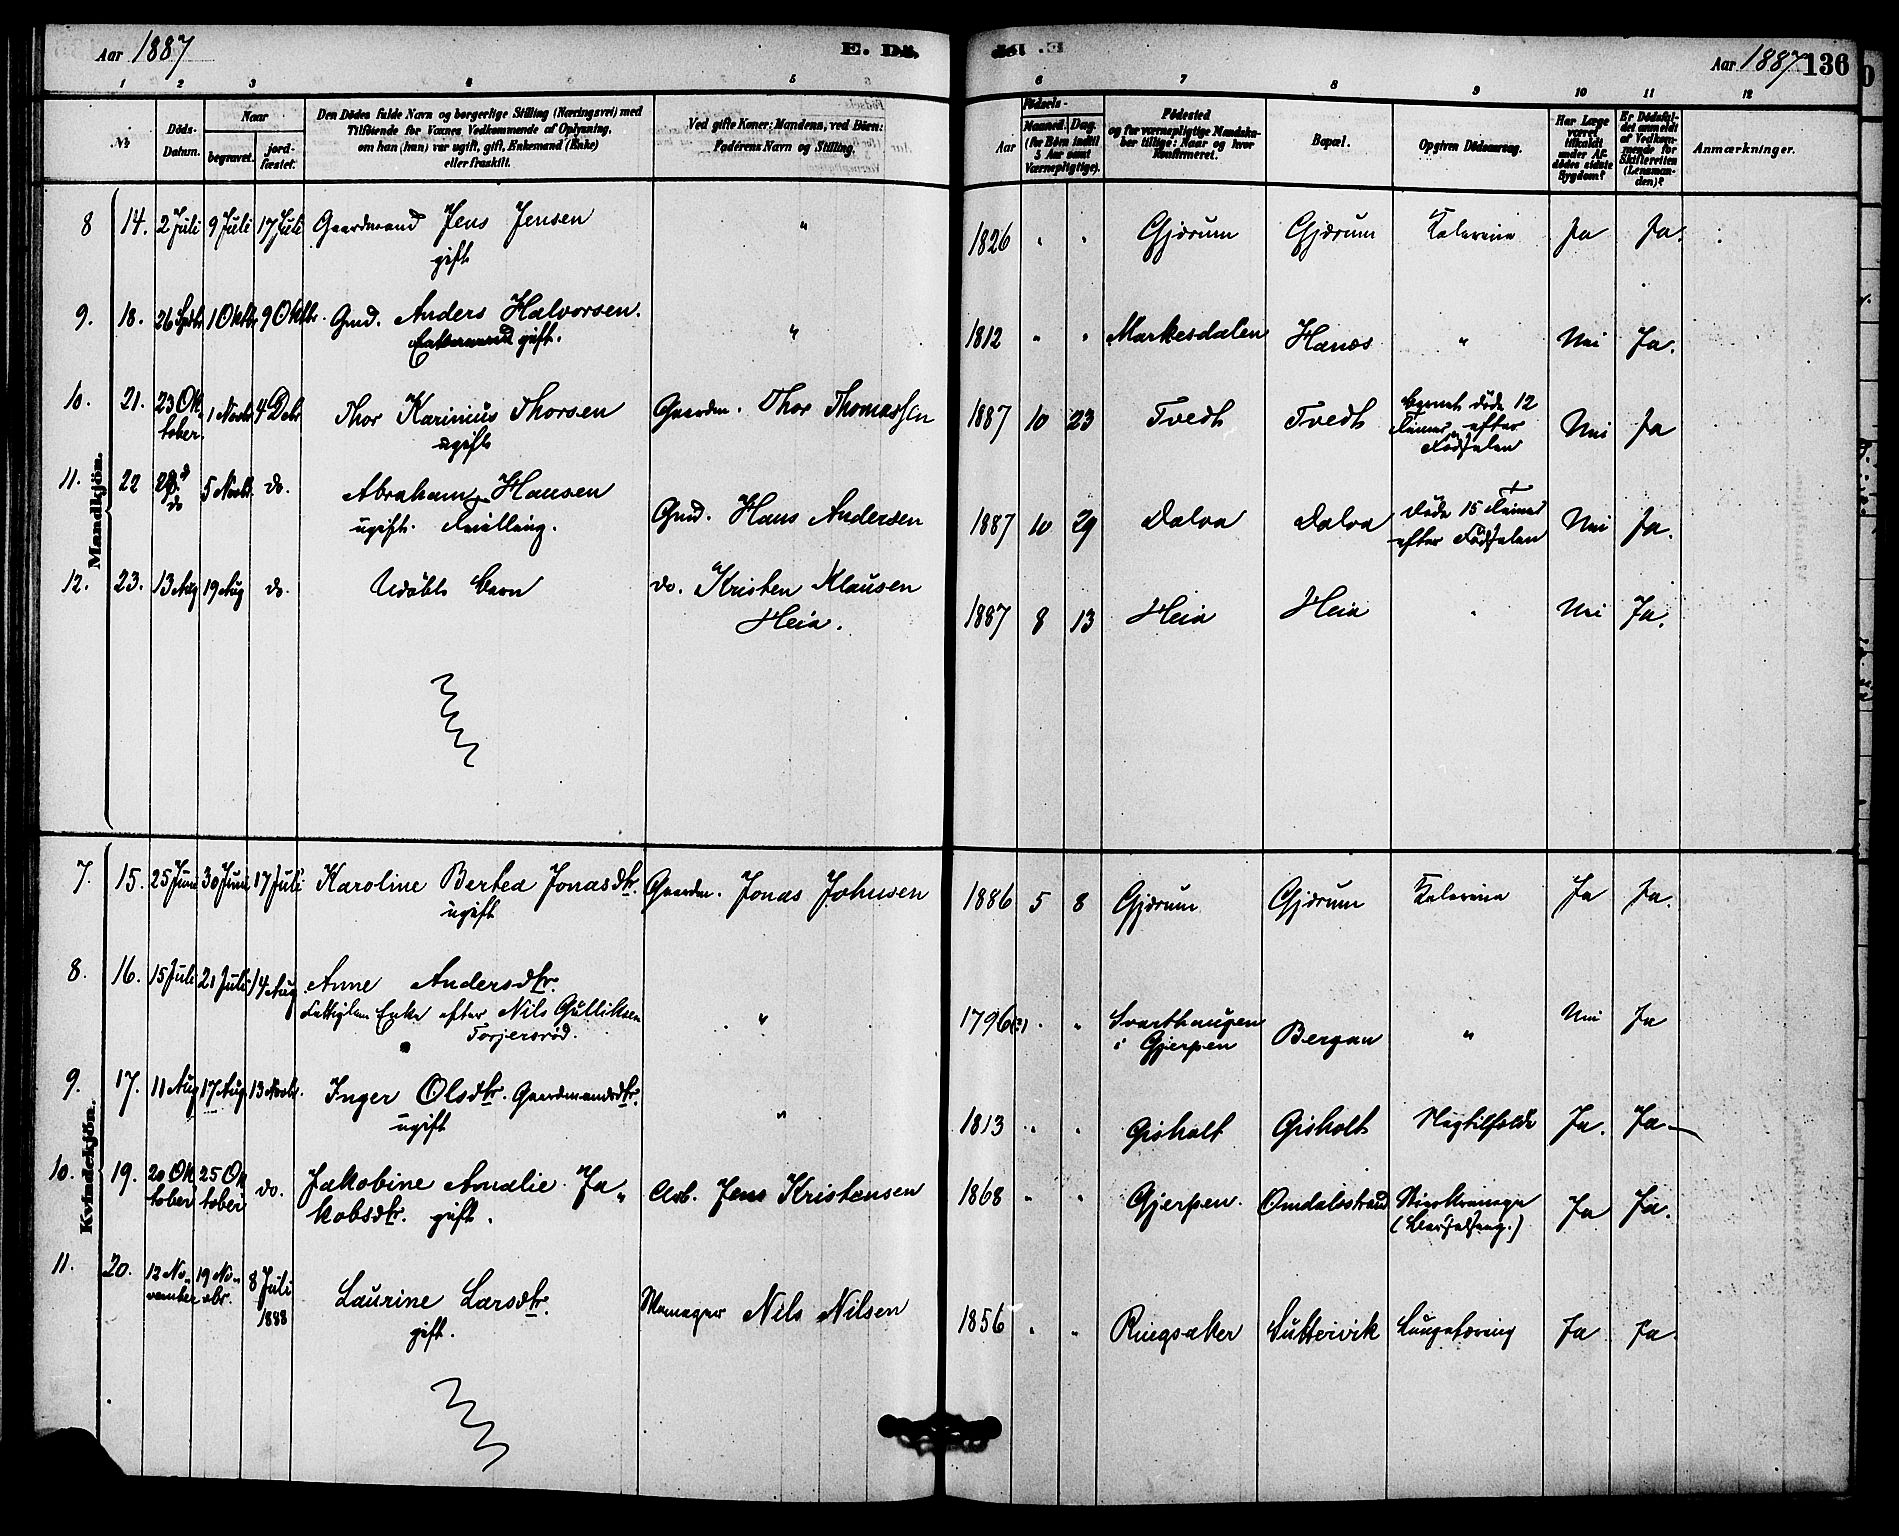 Aar 1887
E. Dö
Aar 1887 136
1 2 3 4 5 6 7 8 9 10 11 12
No
Döds-Datum.
Naar
begravet.
jord-fæstet.
Den Dödes fulde Navn og borgerlige Stilling (Næringsvei) med
Tilföiende for Voxnes Vedkommende af Oplysning,
om han (hun) var ugift, gift, Enkemand (Enke)
eller fraskilt.
Ved gifte Koner: Mandens, ved Börn:
Faderens Navn og Stilling.
Aar
Födsels-
Maaned. Dag.
(for Børn indtil
5 Aar samt
Værnepligtige).
Födested
og for værnepligtige Mandska-
ber tillige: Naar og hvor
Konfirmeret.
Bopæl.
Opgiven Dödsaarsag.
Har Læge
været
tilkaldt
under Af-
dödes sidste
Sygdom?
Er Dödsfal-
det anmeldt
af Vedkom-
mende for
Skifteretten
(Lensman-
den)?
Anmærkninger.
Mandkjön.
8 14. 2 Juli 9 Juli 17 Juli Gaardmand Jens Jensen " 1826 " " Gjærum Gjærum Kolerine Ja Ja.
gift
9. 18. 26 Septb 1 Oktbr 9 Oktbr. Gmd. Anders Halvorsen. " 1812 " " Markesdalen Hanæs " Nei Ja.
gift.
10. 21. 23 Oktober 1 Novbr 4 Debr Thor Karinius Thorsen Gaardm. Thor Thomassen 1887 10 23 Tvedt Tvedt Barnet døde 12 Timer efter Fødselen Nei Ja
ugift
11. 22 29 do 5 Novbr. do. Abraham Hansen Gmd. Hans Andersen 1887 10 29 Dalva Dalva Døde 15 Timer efter Fødselen Nei Ja.
ugift. Tvilling.
12. 23. 13 Aug 19 Aug do. Udøbt Barn do. Kristen Klausen 1887 8 13 Heia Heia " Nei Ja.
Heia.
Kvindekjön.
7. 15. 25 Juni 30 Juni 17 Juli Karoline Bertea Jonasdtr. Gaardm. Jonas Johnsen 1886 5 8 Gjærum Gjærum Kolerine Ja Ja.
ugift
8. 16. 15 Juli 21 Juli 14 Aug Anne Andersdtr. " 1796(?) " " Svarthaugen i Gjerpen Bergan " Nei Ja
Fattiglem Enke efter Nils Gulliksen
Torjersrød.
9. 17. 11 Aug 17 Aug. 13 Novbr. Inger Olsdtr. Gaardmandsdtr. " 1813 " " Gisholt Gisholt Slagtilfælde Ja. Ja
ugift
10. 19. 20 Oktober 25 Oktober do. Jakobine Amalie Ja- Arb. Jens Kristensen 1868 " " Gjerpen. Omdalsstrand (Barselseng.) Ja Ja.
kobsdtr. gift.
11. 20. 12 November 19 Novbr. 8 Juli 1888 Laurine Larsdtr. Nils Nilsen 1856 " " Ringsaker Suttervik Lungetæring Ja Ja.
gift.